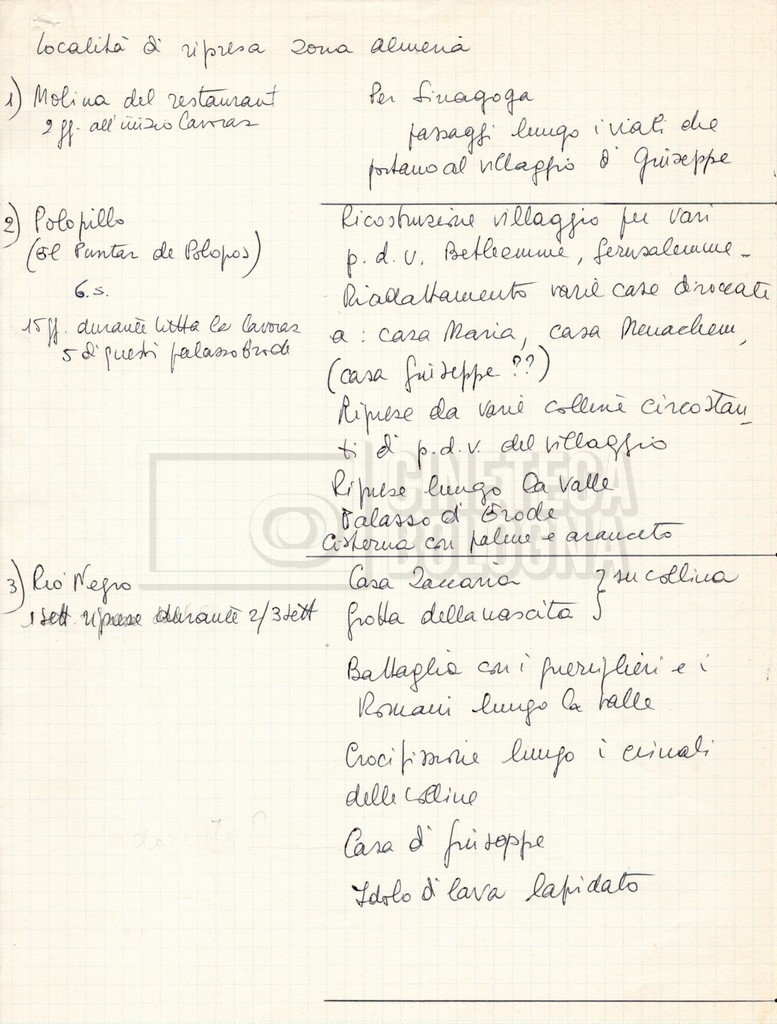 Località di ripresa zona Almeria
1) Molina del restaurant
2 gg. all'inizio lavoraz
Per Sinagoga
passaggi lungo i viali che
portano al villaggio di Giuseppe
2) Polopillo
(El Puntar de Polopos)
6 s.
15 gg. durante tutta la lavoraz
5 di questi palazzo Erode
Ricostruzione villaggio per vari
p.d.v. Betlemme, Gerusalemme -
Riadattamento varie case diroccate
a: casa Maria, casa Menachem,
(casa Giuseppe ??)
Riprese da varie colline circostan_
ti di p.d.v. del villaggio
Riprese lungo la valle
Palazzo di Erode
Cisterna con palme e aranceto
3) Rio Negro
1 sett riprese durante 2/3 sett
Casa Zaccaria } su collina
Grotta della nascita
Battaglia con i guerriglieri e i
Romani lungo la valle
Crocifissione lungo i crinali
delle colline
Casa di Giuseppe
Idolo di lava lapidato
CINETECA
BOLOGNA